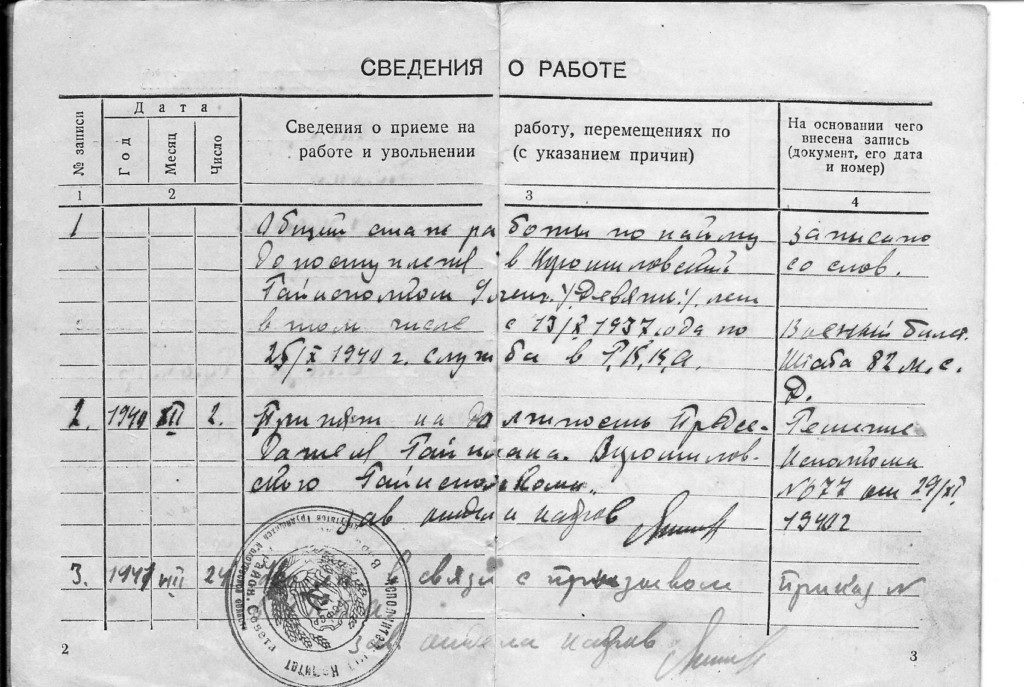 СВЕДЕНИЯ О РАБОТЕ
№ записи
Дата
Год
Месяц
Число
Сведения о приеме на работу, перемещениях по
работе и увольнении (с указанием причин)
На основании чего
внесена запись
(документ, его дата
и номер)
1 2 3 4
1 Общий стаж работы по найму записано
до поступления в Ворошиловский со слов.
Райисполком 9 /Девять/ лет
в том числе с 13/X 1937 года по Военный билет
25/X 1940 г. служба в Р.К.К.А. Штаба 82 м.с.
Д.
2. 1940 XII 2. Принят на должность Предсе- Решение
дателя Райплана. Ворошилов- Исполкома
ского Райисполкома №077 от 29/XI
зав отделом кадров 1940г
3. 1941 VIII 24 в связи с призывом Приказ №
зав отдела кадров
2 3